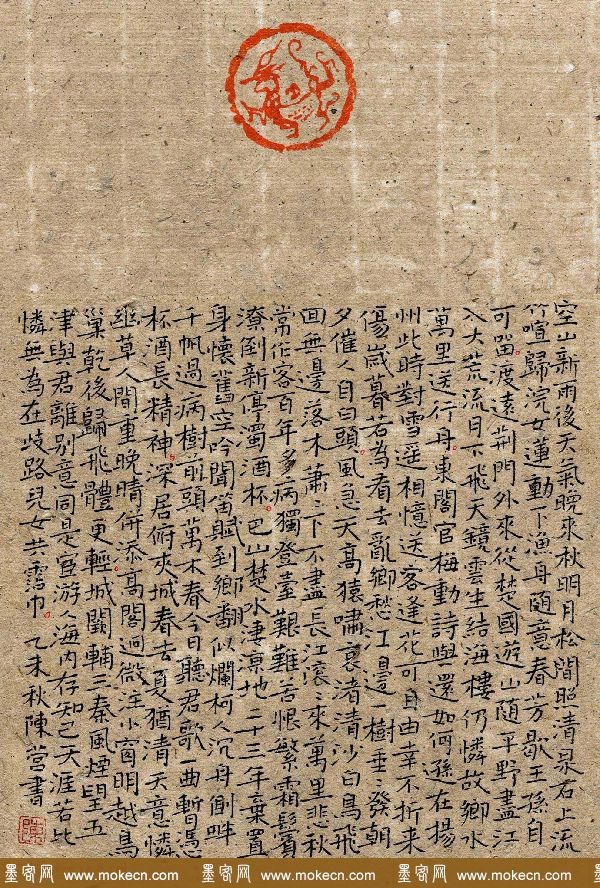 空山新雨後天氣晚來秋明月松間照清泉石上流
竹喧歸浣女蓮動下漁舟隨意春芳歇王孫自
可留渡遠荊門外來從楚國遊山隨平野盡江
入大荒流月下飛天鏡雲生結海樓仍憐故鄉水
萬里送行舟東閣官梅動詩興還如何遜在揚
州此時對雪遥相憶送客逢花可自由幸不折來
傷歲暮若為看去亂鄉愁江邊一樹垂〻發朝
夕催人自白頭風急天高猿嘯哀渚清沙白鳥飛
回無邊落木蕭〻下不盡長江滾〻來萬里悲秋
常作客百年多病獨登臺艱難苦恨繁霜鬢
潦倒新停濁酒杯巴山楚水淒涼地二十三年棄置
身懷舊空吟聞笛賦到鄉翻似爛柯人沉舟側畔
千帆過病樹前頭萬木春今日聽君歌一曲暫憑
杯酒長精神深居俯夾城春去夏猶清天意憐
幽草人間重晚晴併添高閣迥微注小窗明越鳥
巢乾後歸飛體更輕城闕輔三秦風煙望五
津與君離別意同是宦游人海內存知己天涯若比
憐無為在歧路兒女共霑巾 乙未秋陳營書
墨客网 www.mokecn.com 墨客网 www.mokecn.com 墨客网 www.mokecn.com 墨客网